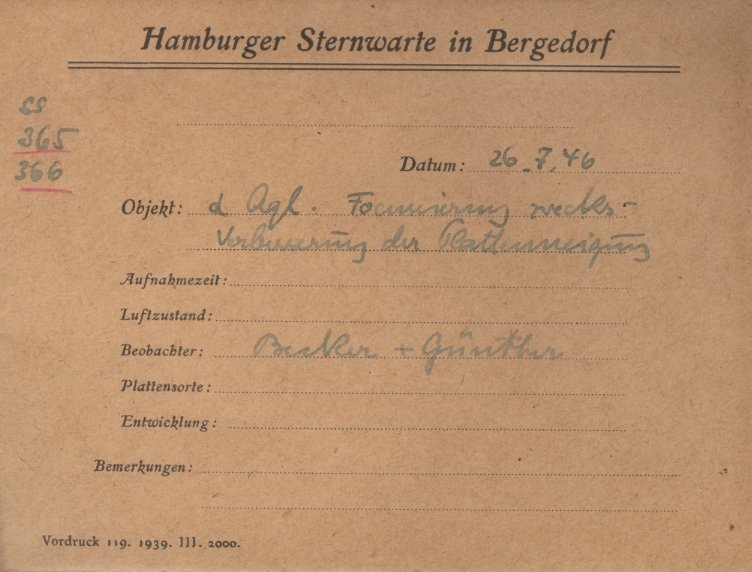 Hamburger Sternwarte in Bergedorf
SS
365
366
Datum: 26.7.46
Objekt: α Aql. Focussierung zwecks
Verbesserung der Plattenneigung
Aufnahmezeit:
Luftzustand:
Beobachter: Becker + Günther
Plattensorte:
Entwicklung:
Bemerkungen:
Vordruck 119. 1939. III. 2000.